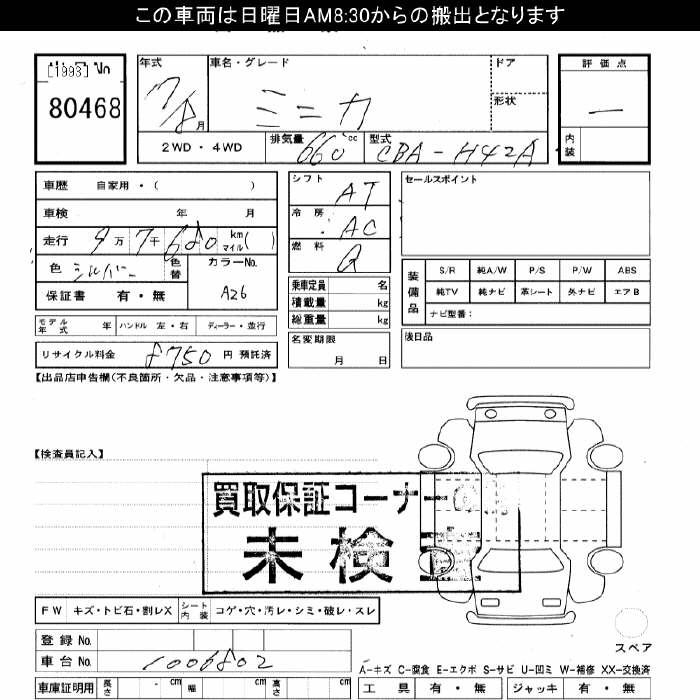 この車両は日曜日AM8:30からの搬出となります
[1993] No
80468
年式
車名・グレード
ドア
評価点
7/8 月
ミニカ
形状
—
2WD・4WD
排気量
660 cc
型式
CBA-H42A
内装
車歴 自家用・( )
シフト
AT
セールスポイント
車検 年 月
冷房
AC
走行 9万 7千 680 km マイル ( )
燃料
G
色 シルバー
色替
カラーNo.
A26
乗車定員 名
装備品
S/R 純A/W P/S P/W ABS
保証書 有・無
積載量 kg
純TV 純ナビ 革シート 外ナビ エアB
総重量 kg
ナビ型番:
モデル年式 年 ハンドル 左・右 ディーラー・並行
名変期限
月 日
後日品
リサイクル料金 8750 円 預託済
【出品店申告欄(不良箇所・欠品・注意事項等)】
【検査員記入】
買取保証コーナー
未検
FW キズ・トビ石・割レX シート内装 コゲ・穴・汚レ・シミ・破レ・スレ
登録 No.
スペア
車台 No. 1006802
A-キズ C-腐食 E-エクボ S-サビ U-凹ミ W-補修 XX-交換済
車庫証明用 長さ - cm 幅 cm 高さ cm
工具 有・無 ジャッキ 有・無